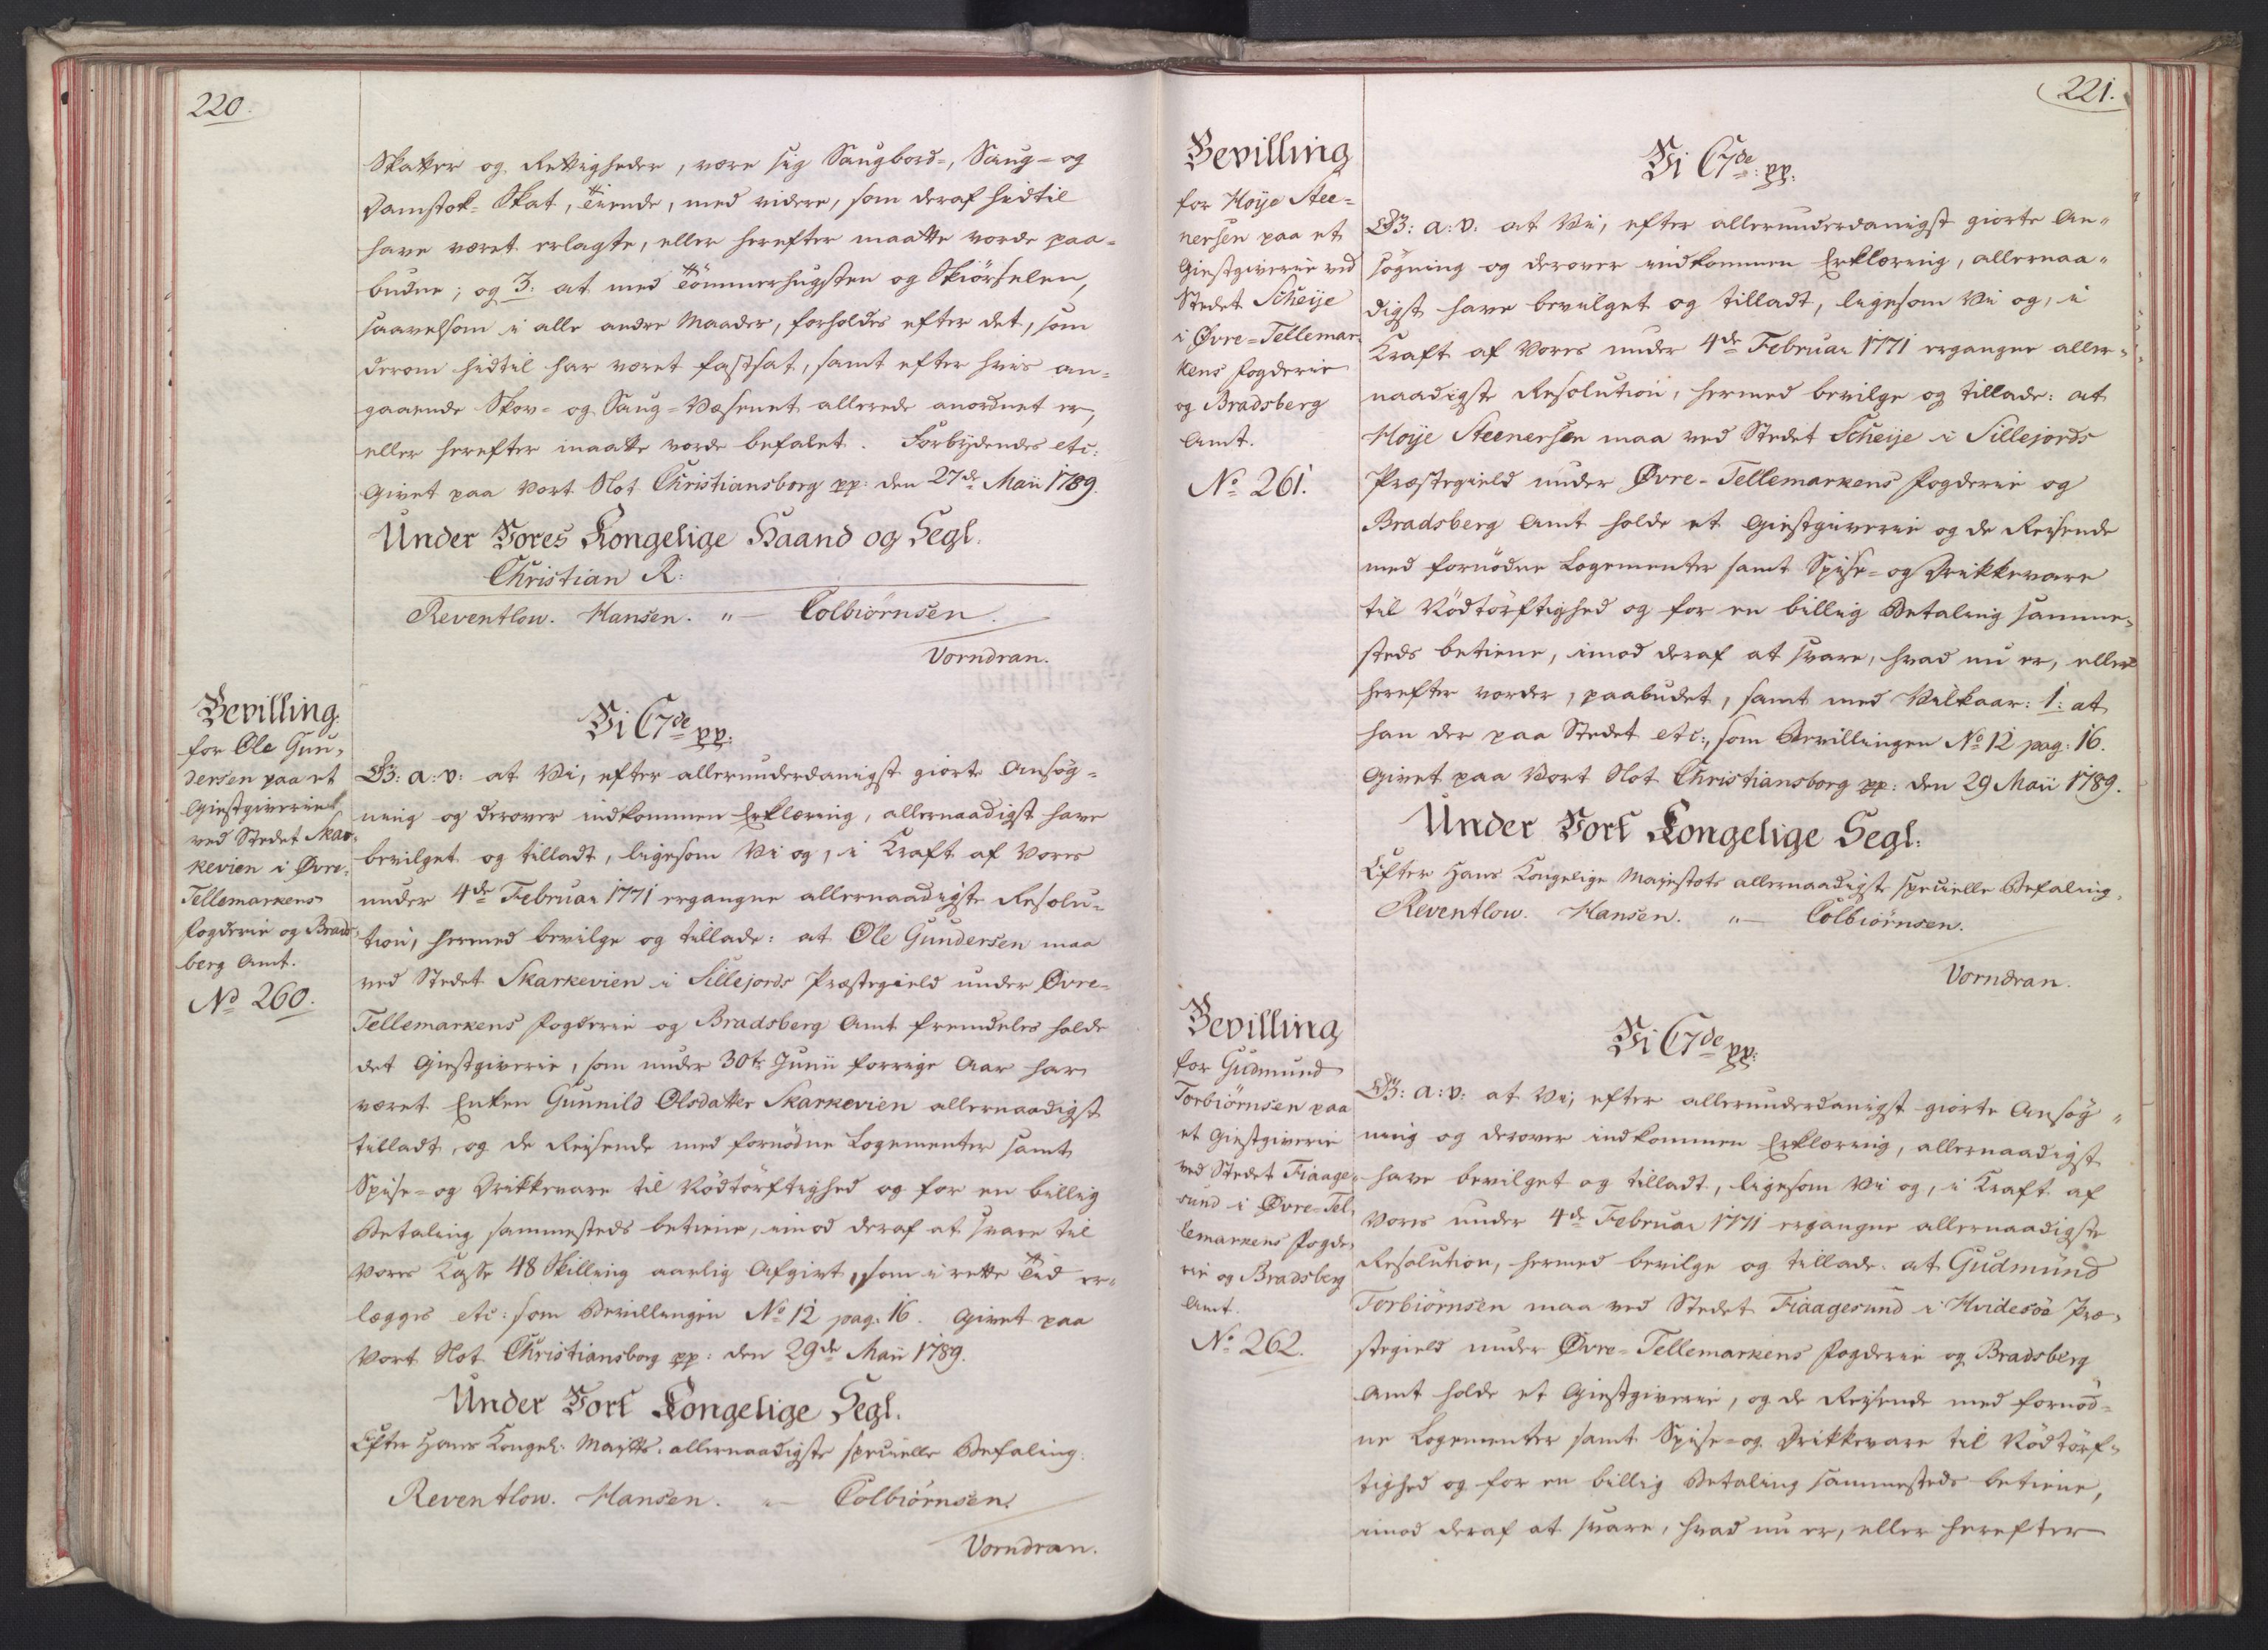 220.
Skatter og Rettigheder, være sig Saugbord-, Saug- og
Damstok-Skat, Tiende, med videre, som deraf hidtil
have været erlagte, eller herefter maatte vorde paa-
budne; og 3: at med Tömmerhugsten og Skiörselen,
saavelsom i alle andre Maader, forholdes efter det, som
derom hidtil har været fastsat, samt efter hvis an-
gaaende Skov- og Saug-Væsenet allerede anordnet er,
eller herefter maatte vorde befalet. Forbydendes etc:
Givet paa Vort Slot Christiansborg pp: den 27de Maii 1789.
Under Vores Kongelige Haand og Segl.
Christian R:
Reventlow. Hansen. „ — Colbiörnsen.
Vorndran.
Bevilling
for Ole Gun-
dersen paa et
Giestgiverie
ved Stedet Skar-
kevien i Øvre-
Tellemarkens
Fogderie og Brads-
berg Amt.
No 260.
Vi C7de pp:
G: a: v: at Vi, efter allerunderdanigst giorte Ansøg-
ning og derover indkommen Erklæring, allernaadigst have
bevilget og tilladt, ligesom Vi og, i Kraft af Vores
under 4de Februar 1771 ergangne allernaadigste Resolu-
tion, hermed bevilge og tillade: at Ole Gundersen maa
ved Stedet Skarkevien i Sillejords Præstegield under Øvre-
Tellemarkens Fogderie og Bradsberg Amt fremdeles holde
det Giestgiverie, som under 30te Junii forrige Aar har
været Enken Gunnild Olsdatter Skarkevien allernaadigst
tilladt, og de Reisende med fornödne Logementer samt
Spise- og Drikkevare til Nödtörftighed og for en billig
Betaling sammesteds betiene, imod deraf at svare til
Vores Kasse 48 Skilling aarlig Afgivt, som i rette Tid er-
lægges etc: som Bevillingen No 12 pag: 16. Givet paa
Vort Slot Christiansborg pp: den 29de Maii 1789.
Under Vort Kongelige Segl.
Efter Hans Kongel: Maytts: allernaadigste specielle Befaling.
Reventlow. Hansen. „ — Colbiörnsen.
Vorndran.
221.
Bevilling
for Höije Stee-
nersen paa et
Giestgiverie ved
Stedet Scheije
i Øvre-Tellemar-
kens Fogderie
og Bradsberg
Amt.
No 261.
Vi C7de: pp:
G: a: v: at Vi, efter allerunderdanigst giorte An-
søgning og derover indkommen Erklæring, allernaa-
digst have bevilget og tilladt, ligesom Vi og, i
Kraft af Vores under 4de Februar 1771 ergangne aller-
naadigste Resolution, hermed bevilge og tillade: at
Höije Steenersen maa ved Stedet Scheije i Sillejords
Præstegield under Øvre-Tellemarkens Fogderie og
Bradsberg Amt holde et Giestgiverie og de Reisende
med fornödne Logementer samt Spise- og Drikkevare
til Nödtörftighed og for en billig Betaling samme-
steds betiene, imod deraf at svare, hvad nu er, eller
herefter vorder, paabudet, samt med Vilkaar: 1: at
han der paa Stedet etc:, som Bevillingen No 12 pag: 16.
Givet paa Vort Slot Christiansborg pp: den 29 Maii 1789.
Under Vort Kongelige Segl.
Efter Hans Kongelige Majestæts allernaadigste specielle Befaling.
Reventlow. Hansen. „ — Colbiörnsen.
Vorndran.
Bevilling
for Gudmund
Torbiörnsen paa
et Giestgiverie
ved Stedet Fiaage-
sund i Øvre-Tel-
lemarkens Fogde-
rie og Bradsberg
Amt.
No 262.
Vi C7de pp:
G: a: v: at Vi, efter allerunderdanigst giorte Ansøg-
ning og derover indkommen Erklæring, allernaadigst
have bevilget og tilladt, ligesom Vi og, i Kraft af
Vores under 4de Februar 1771 ergangne allernaadigste
Resolution, hermed bevilge og tillade: at Gudmund
Torbiörnsen maa ved Stedet Fiaagesund i Hvidesöe Præ-
stegield under Øvre-Tellemarkens Fogderie og Bradsberg
Amt holde et Giestgiverie, og de Reisende med fornöd-
ne Logementer samt Spise- og Drikkevare til Nödtörf-
tighed og for en billig Betaling sammesteds betiene,
imod deraf at svare, hvad nu er, eller herefter